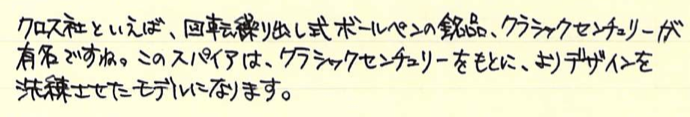 クロス社といえば、回転繰り出し式ボールペンの銘品、クラシックセンチュリーが
有名ですね。このスパイアは、クラシックセンチュリーをもとに、よりデザインを
洗練させたモデルになります。